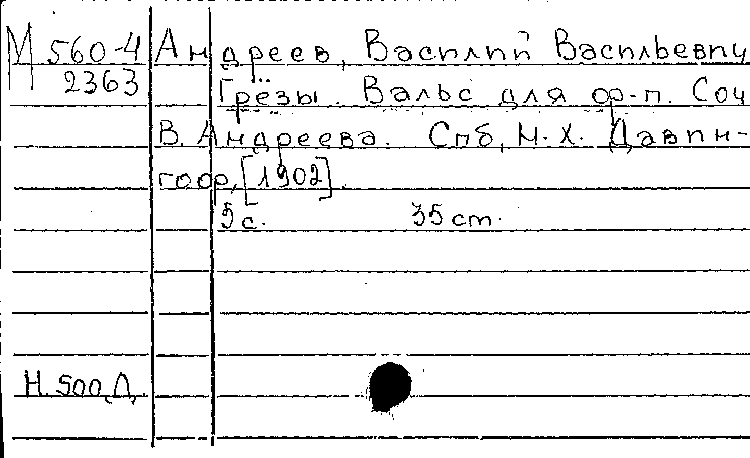 М 560-4
2363
Андреев, Василий Васильевич
Грёзы. Вальс для ф-п. Соч
В. Андреева. Спб, М. Х. Давин-
гооф, [1902].
5 с. 35 cm.
Н. 500, Д,